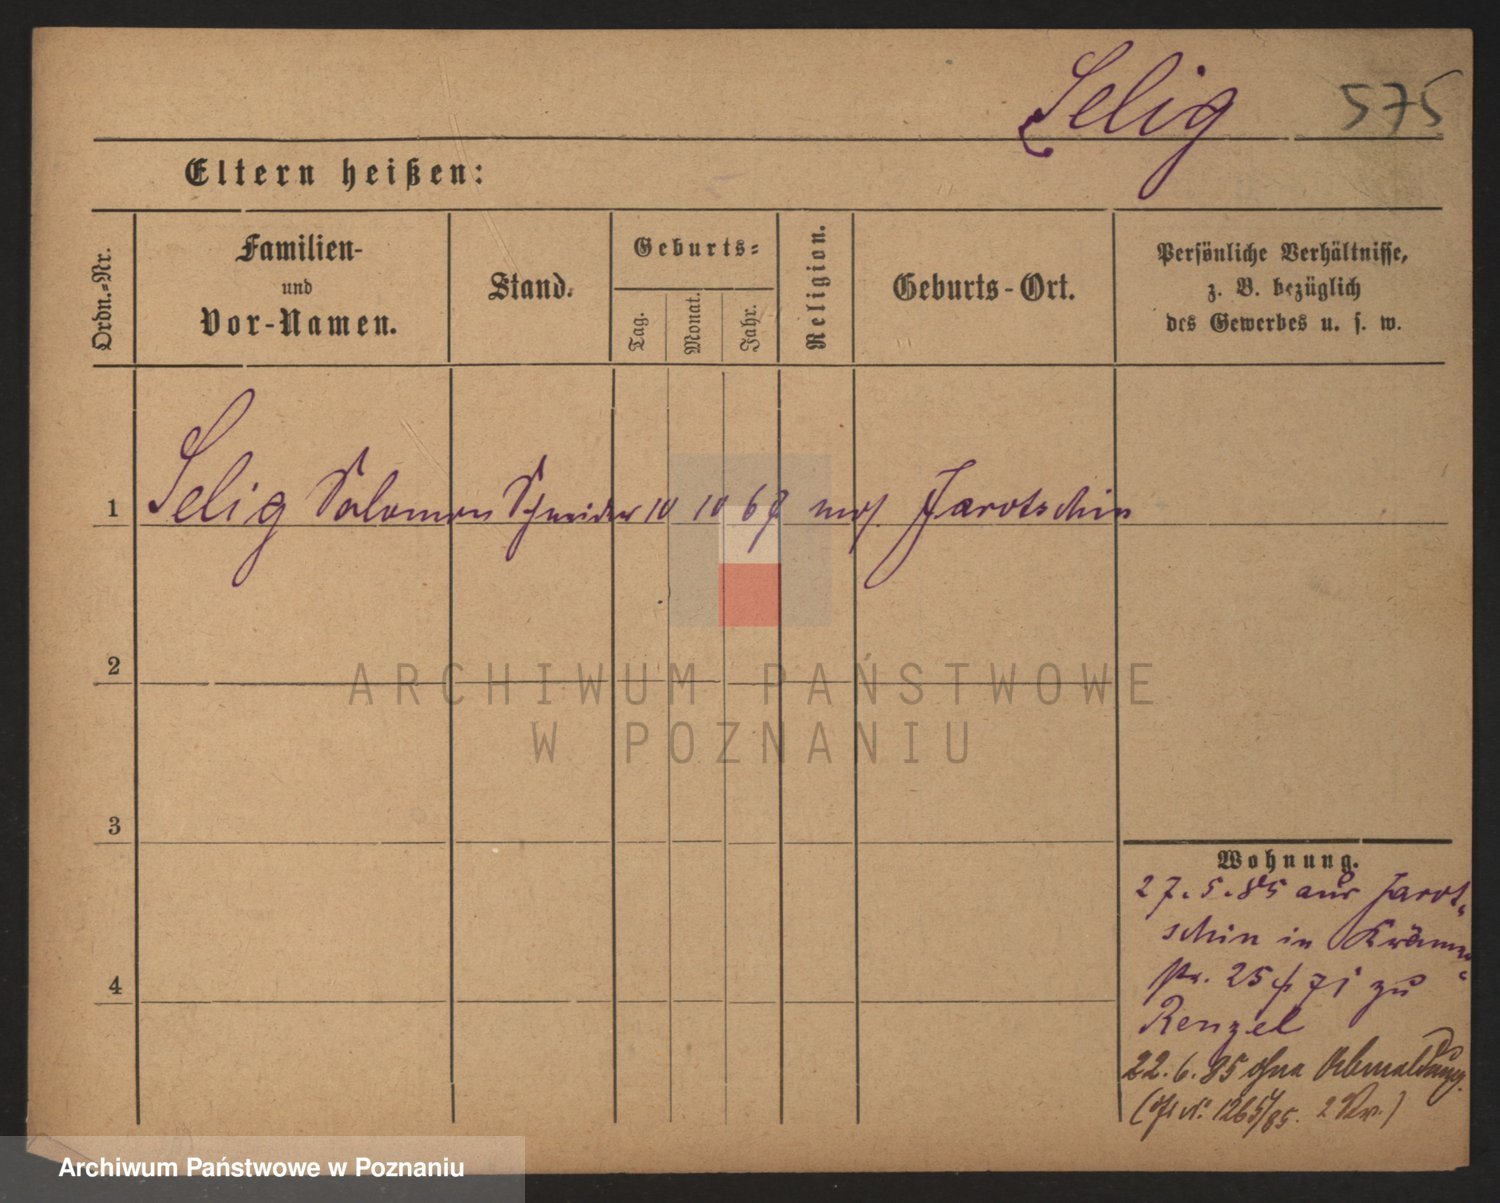 Selig 575
Eltern heißen:
Ordn.=Nr.
Familien-
und
Vor-Namen.
Stand.
Geburts=
Tag.
Monat.
Jahr.
Religion.
Geburts-Ort.
Persönliche Verhältnisse,
z. B. bezüglich
des Gewerbes u. s. w.
1 Selig Salomon Schneider 10 10 67 mos. Jarotschin
2
ARCHIWUM PAŃSTWOWE
W POZNANIU
3
4
Wohnung.
27.5.85 aus Jarot-
schin in Krämer-
str. 25 zu
Renzel
22.6.85 ohne Abmeldung.
1265/85. 2
Archiwum Państwowe w Poznaniu